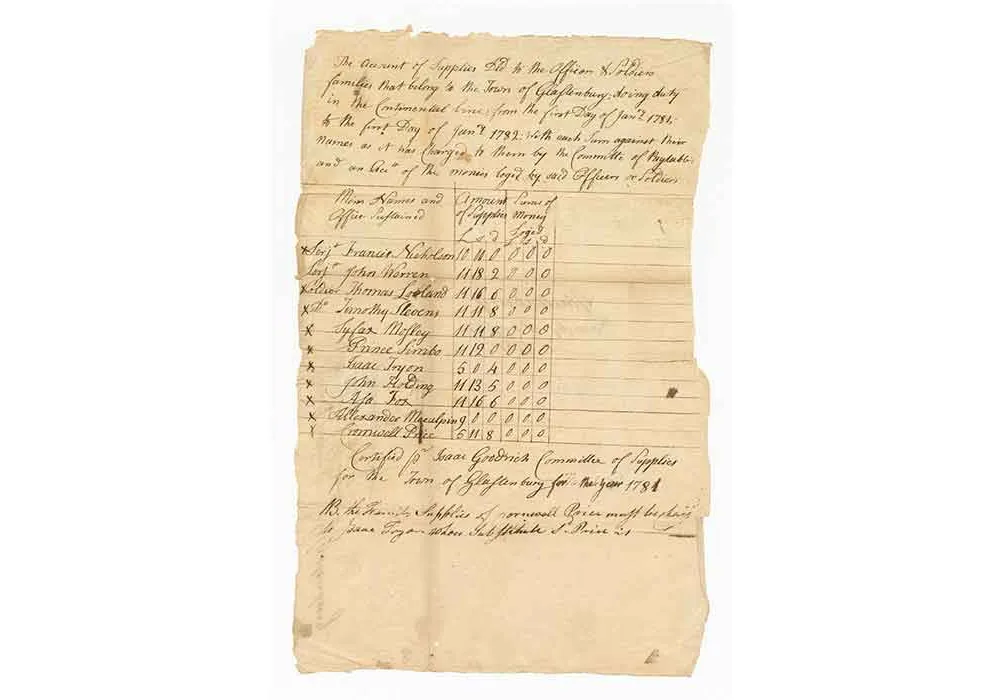 The Account of Supplies Dld to the Officers & Soldiers
families that belong to the Town of Glastenbury, doing duty
in the Continental Line, from the first Day of Janry 1781,
to the first Day of Janry 1782: with each Sum against their
names as it was Charged to them by the Committe of
and an Acct of the monies loged by said Officers or Soldiers
Mens Names and Amount Sums of
Office Sustained of Supplies Money
Loged
L s d L s d
x Serjt Francis Nicholson 10 11 0 0 0 0
Serjt John Warren 11 18 2 0 0 0
x Soldier Thomas Loveland 11 16 6 0 0 0
x Do Timothy Stevens 11 11 8 0 0 0
x Syfax Mosley 11 11 8 0 0 0
x Prince Simbo 11 12 0 0 0 0
x Isaac Tryon 5 0 4 0 0 0
x John Holding 11 13 5 0 0 0
x Asa Fox 11 16 6 0 0 0
x Allexander Mecalpin 9 0 0 0 0 0
x Cromwell Price 5 11 8 0 0 0
Certified pr Isaac Goodrich Committee of Supplies
for the Town of Glastenbury for the year 1781
NB. the Family Supplies of Cornwell Price must be
to Isaac Tryon whose Substitute Sd Price is